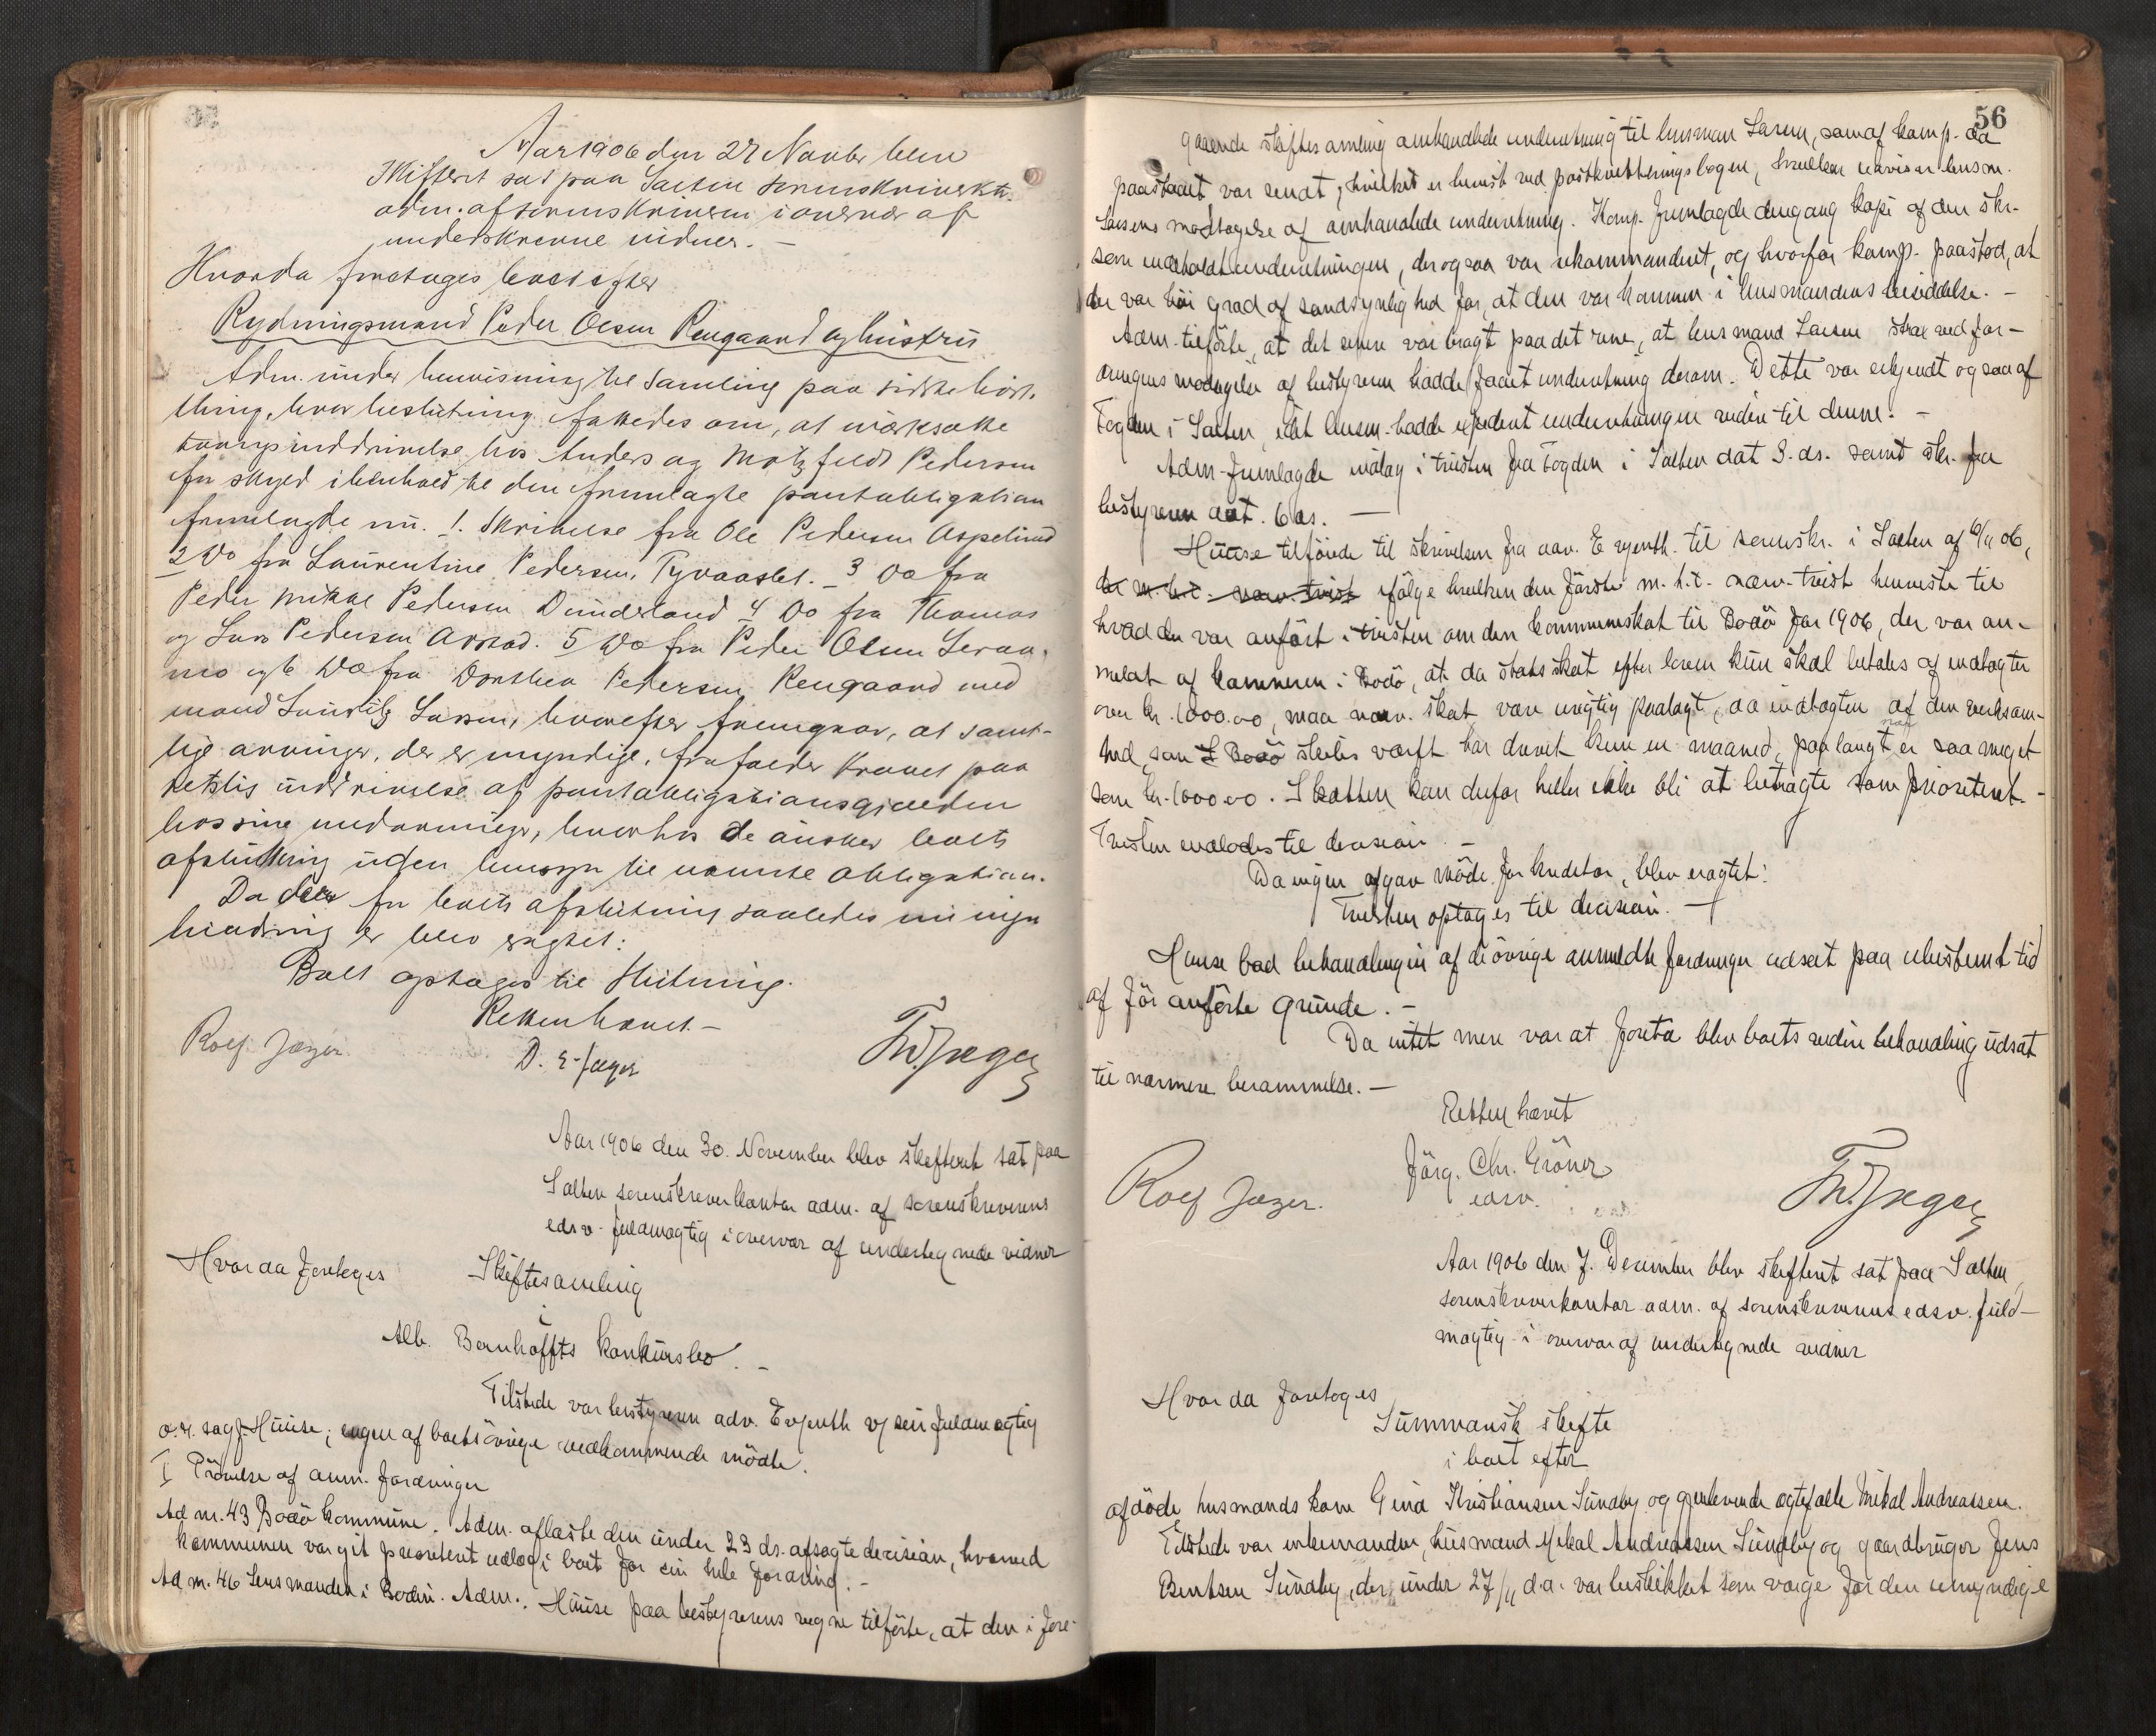 Aar 1906 den 27 Novbr blev
Skifteret sat paa Salten sorenskriverktr.
adm. af sorenskriveren i overvær af
underskrevne vidner. –
Hvorda foretoges boet efter
Rydningsmand Peder Olsen Rengaard og hustru
Adm. under henvisning til Samling paa sidste høst-
thing, hvor beslutning fattedes om, at iværksætte
tvangsinddrivelse hos Anders og Motzfeldt Pedersen
for skyld i henhold til den fremlagte pantobligation
fremlagde nu. 1. Skrivelse fra Ole Pedersen Aspelund
2 Do fra Laurentine Pedersen, – 3 Do fra
Peder Mikal Pedersen Dunderland 4 Do fra Thomas
og Lars Pedersen 5 Do fra Peder Olsen
og 6 Do fra Dorthea Pedersen, Rengaard med
mand Lauritz Larsen, hvorefter fremgaar, at samt-
lige arvinger, der er myndige, frafalder kravet paa
retslig inddrivelse af pantobligationsgjælden
hos sine medarvinger, hvorhos de ønsker boets
afslutning uden hensyn til nævnte obligation.
Da der for boets afslutning saaledes nu ingen
hindring er blev eragtet:
Boet optages til Slutning.
Retten hævet. –
Rolf Jæger. D. E. Jæger Th. Jæger
Aar 1906 den 30. November blev skifteret sat paa
Salten sorenskriverkontor adm. af sorenskriverens
edsv. fuldmægtig i overvær af undertegnede vidner
Hvor da foretoges Skiftesamling
i
Alb. Bernhoffts konkursbo. –
Tilstede var bestyreren adv. Evjenth v/ sin fuldmægtig
o.r. sagf. Hüuse; ingen af boets øvrige vedkommende mødte.
I Prøvelse af anm. fordringer
Ad nr. 43 Bodø kommune. Adm. oplæste den under 23 ds. afsagte decision, hvorved
kommunen var git prioritert udlæg i boet for sin hele fordring. –
Ad nr. 46 Lensmanden i Bodin. Adm.. Hüuse paa bestyrerens vegne tilførte, at den i fore-
56
gaaende skiftesamling omhandlede underretning til lensman Larsen, som af komp. da
paastaaet var sendt, hvilket er bevist ved postkvitteringsbogen, hvilken udviser lensm.
Larsens modtagelse af omhandlede underretning. Komp. fremlagde dengang kopi af den skr.
som indeholdt underretningen, der ogsaa var rekommanderet, og hvorfor komp. paastod, at
der var høi grad af sandsynlighed for, at den var kommen i lensmandens besiddelse. –
Adm. tilførte, at det senere var bragt paa det rene, at lensmand Larsen strax ved for-
æringens modtagelse af bestyreren hadde faaet underretning derom. Dette var erkjendt ogsaa af
Fogden i Salten, idet lensm. hadde expedert underretningen videre til denne. –
Adm. fremlagde indlæg i tvisten fra Fogden i Salten dat 3. ds. samt skr. fra
bestyreren dat. 6 ds. –
Hüuse tilføiede til skrivelsen fra adv. Evjenth. til sorenskr. i Salten af 6/11 06,
der m.h.t. næv. tvist ifølge hvilken den første m.h.t. næv. tvist henviste til
hvad der var anført i tvisten om den kommuneskat til Bodø for 1906, der var an-
meldt af kæmneren i Bodø, at da statsskat efter loven kun skal betales af indtægter
over kr. 1000.00, maa næv. skat være urigtig paalagt, da indtægten af den verksom-
hed, som Bodø skibsværft har drevet kun en maaned, paa langt nær er saa meget
som kr. 1000.00. Skatten kan derfor heller ikke bli at betragte som prioriteret. –
Tvisten indlodes til decision. –
Da ingen afgav møde for kreditor, blev eragtet:
Tvisten optages til decision. –
Hüuse bad behandlingen af de øvrige anmeldte fordringer udsat paa ubestemt tid
af før anførte grunde. –
Da intet mere var at foreta blev boets videre behandling udsat
til nærmere berammelse. –
Retten hævet
Rolf Jæger. Jørg. Chr. Grøner Th. Jæger
edsv.
Aar 1906 den 7. December blev skifteret sat paa Salten
sorenskriverkontor adm. af sorenskriverens edsv. fuld-
mægtig i overvær af undertegnede vidner
Hvor da foretoges
Summarisk skifte
i boet efter
afdøde husmands kone Gina Kristiansen Sundby og gjenlevende ægtefælle Mikal Andreassen.
Tilstede var enkemanden, husmand Mikal Andreassen Sundby og gaardbruger Jens
Bentsen Sundby, der under 27/11 d.a. var beskikket som værge for den umyndige